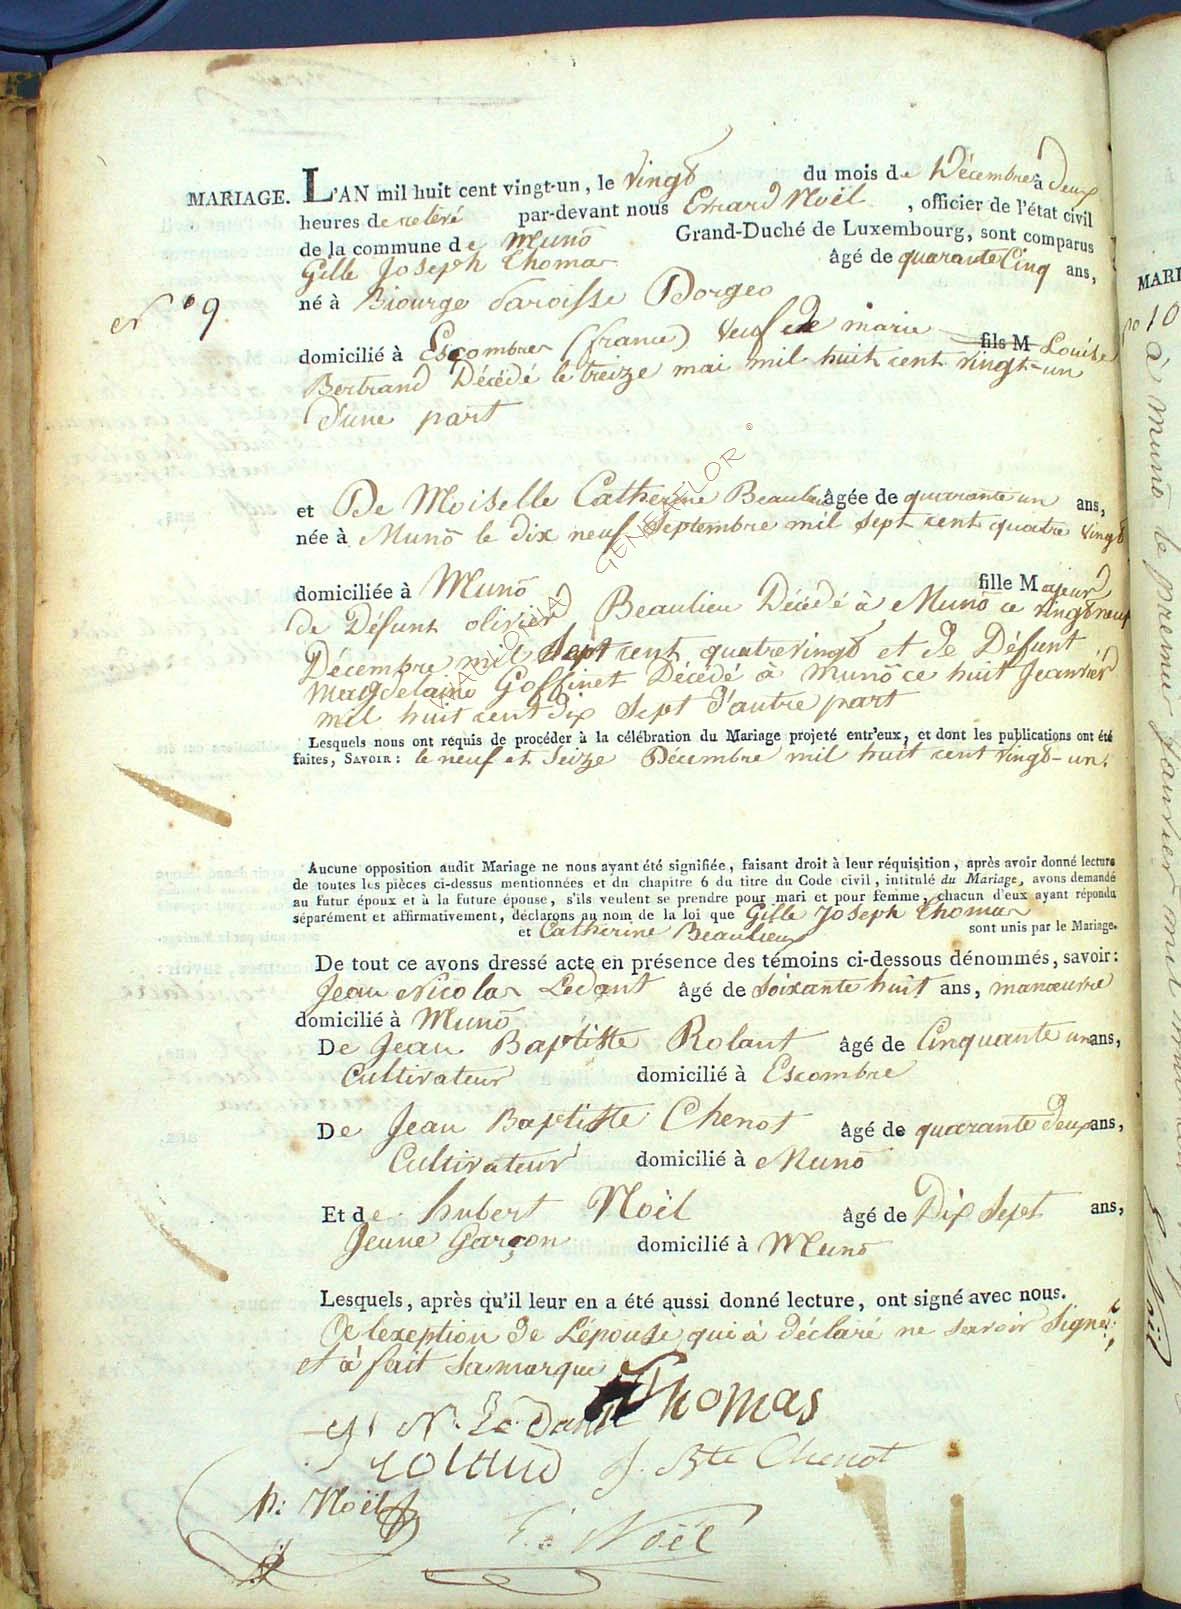 MARIAGE. L'AN mil huit cent vingt-un, le vingt du mois de Décembre à deux
heures de relévé par-devant nous Erhard Noël, officier de l'état civil
de la commune de Muno Grand-Duché de Luxembourg, sont comparus
Gille Joseph Thomas âgé de quarante Cinq ans,
N° 9
né à Biourge Paroisse Dorgeo
domicilié à Escombre (france) veuf de marie fils M Louise
Bertrand Décédé le treize mai mil huit cent vingt-un
d'une part
et De Moiselle Catherine Beaulieu âgée de quarante un ans,
née à Muno le dix neuf Septembre mil sept cent quatre vingt
domiciliée à Muno fille Majeur
de Défunt olivier Beaulieu Décédé à Muno ce vingt neuf
Décembre mil Sept cent quatre vingt et de Défunt
Magdelaine Goffinet Décédé à Muno ce huit Jeanvier
mil huit cent dix Sept d'autre part
Lesquels nous ont requis de procéder à la célébration du Mariage projeté entr'eux, et dont les publications ont été
faites, SAVOIR: le neuf et Seize Décembre mil huit cent vingt-un.
Aucune opposition audit Mariage ne nous ayant été signifiée, faisant droit à leur réquisition, après avoir donné lecture
de toutes les pièces ci-dessus mentionnées et du chapitre 6 du titre du Code civil, intitulé du Mariage, avons demandé
au futur époux et à la future épouse, s'ils veulent se prendre pour mari et pour femme, chacun d'eux ayant répondu
séparément et affirmativement, déclarons au nom de la loi que Gille Joseph Thomas
et Catherine Beaulieu sont unis par le Mariage.
De tout ce avons dressé acte en présence des témoins ci-dessous dénommés, savoir:
Jean Nicolas Ledant âgé de Soixante huit ans, manœuvre
domicilié à Muno
De Jean Baptiste Rolant âgé de Cinquante un ans,
Cultivateur domicilié à Escombre
De Jean Baptiste Chenot âgé de quarante deux ans,
Cultivateur domicilié à Muno
Et de hubert Noël âgé de Dix Sept ans,
Jeune Garçon domicilié à Muno
Lesquels, après qu'il leur en a été aussi donné lecture, ont signé avec nous.
A lexeption de Lépouse qui à déclaré ne savoir Signer
et à fait sa marque
Thomas
J. N. Ledant
Rolland J. Bte Chenot
h: Noël
E: Noël
MAGULONIA GENEAFLOR ©
MARI
no 10
à muno le premier janvier
E Noël